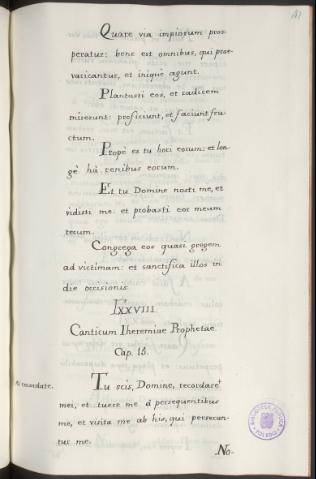 Quare via impiorum pros
peratur: bene est omnibus, qui prae
varicantur, et inique agunt.
Plantasti eos, et radicem
miserunt: proficiunt, et faciunt fru
ctum.
Propè es tu hori eorum: et lon
gè hà renibus eorum.
Et tu Domine nosti me, et
vidisti me: et probasti cor meum
tecum.
Congrega eos quasi gregem
ad victimam: et sanctifica illos in
die occisionis.
LXXVIII
Canticum Iheremiae Prophetae
Cap. 15.
Tu scis, Domine, recordare
mei, et tuere me à persequentibus
me, et visita me ab his, qui persecun
tur me.
No-